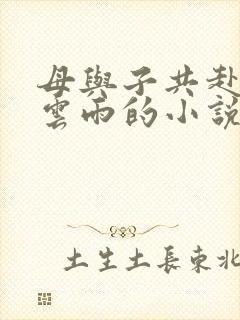 母與子共赴
雲雨的小說
土生土長東北